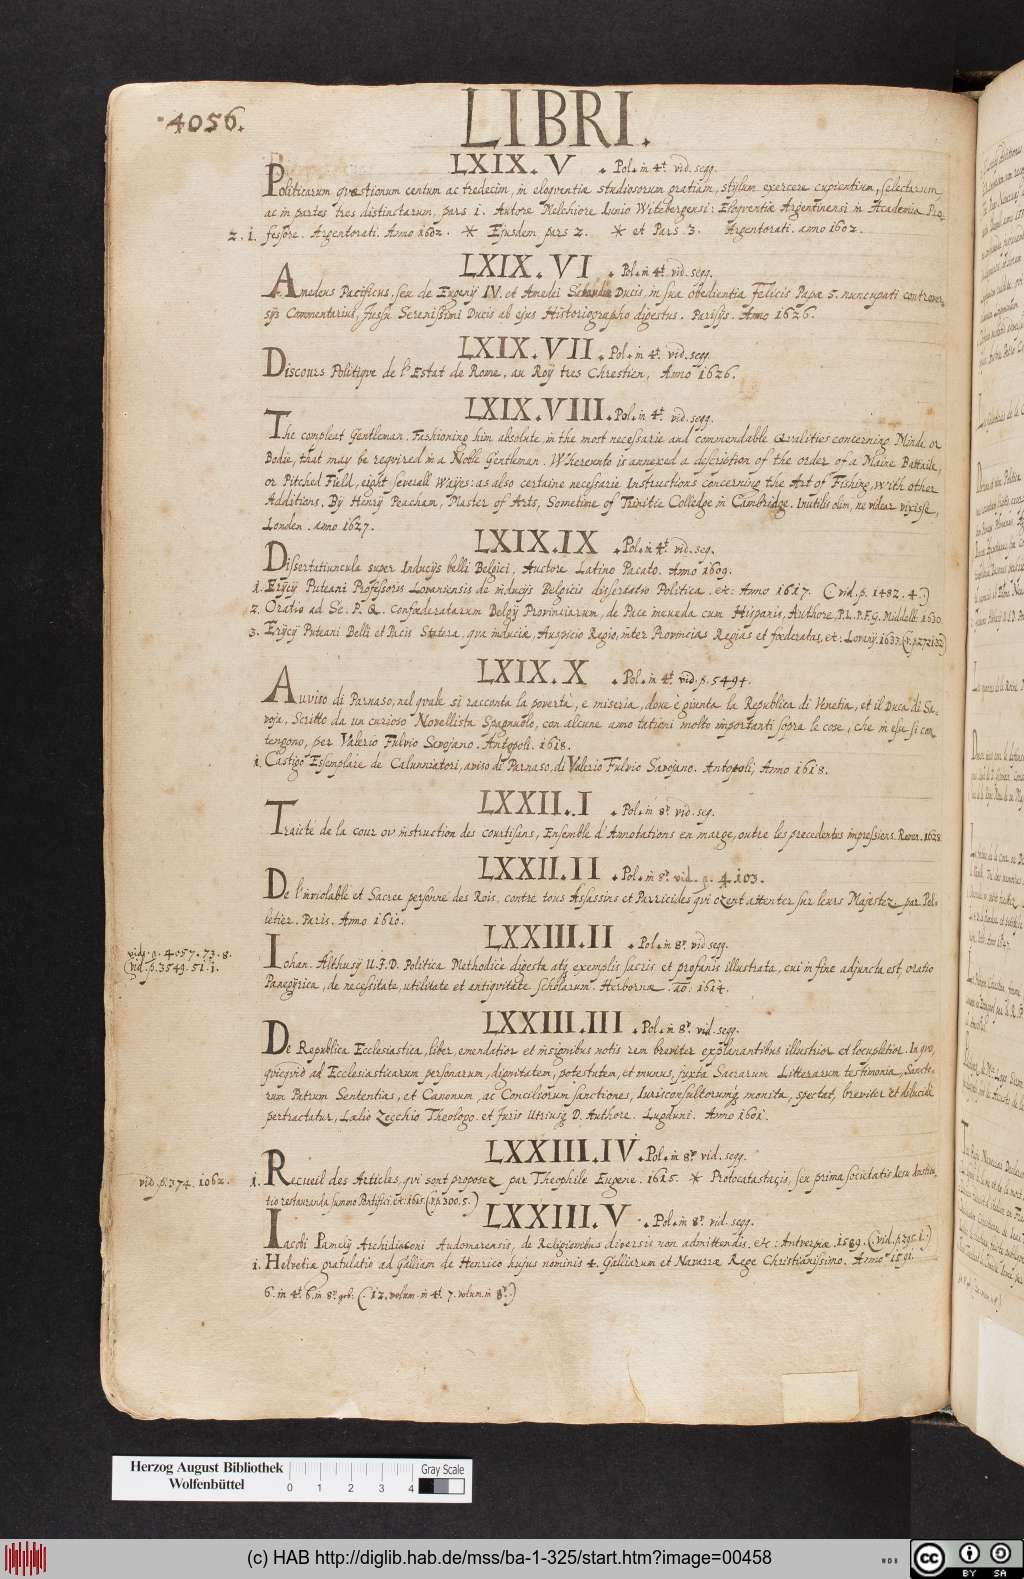 4056.
LIBRI.
LXIX. V . Pol. in 4t. vid. seqq.
Politicarum quæstionum centum ac tredecim, in eloquentiæ studiosorum gratiam, stylum exercere cupientium, selectarum
ac in partes tres distinctarum, pars 1. Autore Melchiore Junio Witebergensi: Eloquentiæ Argentinensi in Academia Pro,
z. i. fessore. Argentorati. Anno 1602. * Ejusdem pars 2. * et Pars 3. Argentorati. anno 1602.
LXIX. VI . Pol. in 4t. vid. seqq.
Amedeus Pacificus. seu de Eugenÿ IV. et Amedei Sabaudiæ Ducis, in sua obedientia Felicis Papæ 5. nuncupati controver,
sÿs Commentarius, jussu Serenissimi Ducis ab ejus Historiographo digestus. Parisÿs. Anno 1626.
LXIX. VII . Pol. in 4t. vid. seqq.
Discours Politique de l'Estat de Rome, au Roÿ tres Chrestien, Anno 1626.
LXIX. VIII . Pol. in 4t. vid. seqq.
The compleat Gentleman. Fashioning him absolute in the most necessarie and commendable Qualities concerning Minde or
Bodie, that may be required in a Noble Gentleman. Whereunto is annexed a description of the order of a Maine Battaile,
or Pitched Field, eight severall Wayes: as also certaine necessarie Instructions concerning the Art of Fishing, with other
Additions. By Henrÿ Peacham, Master of Arts, Sometime of Trinitie Colledge in Cambridge. Inutilis olim, ne videar vixisse,
London. anno 1627.
LXIX. IX . Pol. in 4t. vid. seq.
Dissertatiuncula super Inducÿs belli Belgici, Auctore Latino Pacato. Anno 1609.
1. Erÿcÿ Puteani Professoris Lovaniensis de inducÿs Belgicis dissertatio Politica. etc: Anno 1617. (vid. p. 1482. 4.)
2. Oratio ad Se. P. Q. Confœderatarum Belgÿ Provinciarum, de Pace ineunda cum Hispanis, Authore, P. L. P. F. G. Middelb: 1630.
3. Erÿcÿ Puteani Belli et Pacis Statera, qua induciæ, Auspicio Regio, inter Provincias Regias et fœderatas, etc: Lovanÿ. 1633.
LXIX. X . Pol. in 4t. vid. p. 5494.
Auviso di Parnaso, nel quale si racconta la povertà, e miseria, dove è giunta la Republica di Venetia, et il Duca di Sa,
voja, Scritto da un curioso Novellista Spagnuolo, con alcune anno tationi molto importanti sopra le cose, che in esse si con
tengono, per Valerio Fulvio Savojano. Antopoli. 1618.
1. Castigo Essemplare de Calunniatori, aviso di Parnaso. di Valerio Fulvio Savojano. Antopoli, Anno 1618.
LXXII. I . Pol. in 8o. vid. seq.
Traicté de la Cour ou instruction des courtisans, Ensemble d'Annotations en marge, outre les precedentes impressiens. Rouen. 1628
LXXII. II . Pol. in 8o. vid. p. 4103.
De l'inviolable et Sacree personne des Rois, contre tous Assassins et Parricides qui ozent attenter sur leurs Majestez. par Pel,
letier. Paris. Anno 1610.
LXXIII. II . Pol. in 8o. vid seqq.
vide. p. 4057. 73. 8.
(vid. p. 3549. 51. 1.
Iohan. Althusÿ U. J. D. Politica Methodicè digesta atq exemplis sacris et profanis illustrata, cui in fine adjuncta est, oratio
Panegÿrica, de necessitate, utilitate et antiquitate scholarum. Herbornæ. ao: 1614.
LXXIII. III . Pol. in 8o. vid. seqq.
De Republica Ecclesiastica, liber emendatior et insignibus notis rem breviter explanantibus illustrior et locupletior. In quo,
quicquid ad Ecclesiasticarum personarum, dignitatem, potestatem, et munus, juxta Sacrarum Litterarum testimonia, Sancto,
rum Patrum Sententias, et Canonum, ac Conciliorum sanctiones, Iurisconsultorumq monita, spectat, breviter et dilucidè
pertractatur, Lælio Zecchio Theologo et Juris Utriusq D. Authore. Lugduni. Anno 1601.
LXXIII. IV . Pol. in 8o. vid. seqq.
vid. p. 374. 1062.
1. Recueil des Articles, qui sont proposez par Theophile Eugene. 1615. * Protocatastasis, seu prima societatis Iesu Institu,
tio restauranda summo Pontifici. etc. 1615. (v. p. 300. 5.)
LXXIII. V . Pol. in 8o. vid. seqq.
Iacobi Pamelÿ Archidiaconi Audomarensis, de Religionibus diversis non admittendis. etc: Antverpiæ. 1589. (vid. p. 395. 1.)
1. Helvetiæ gratulatio ad Galliam de Henrico hujus nominis 4. Galliarum et Navarræ Rege Christianissimo. Anno 1591.
6. in 4t. 6. in 8o. geb. (12. volum. in 4t. 7. volum. in 8o.)
Herzog August Bibliothek
Wolfenbüttel
0 1 2 3 4
Gray Scale
(c) HAB http://diglib.hab.de/mss/ba-1-325/start.htm?image=00458
WDB
cc BY SA